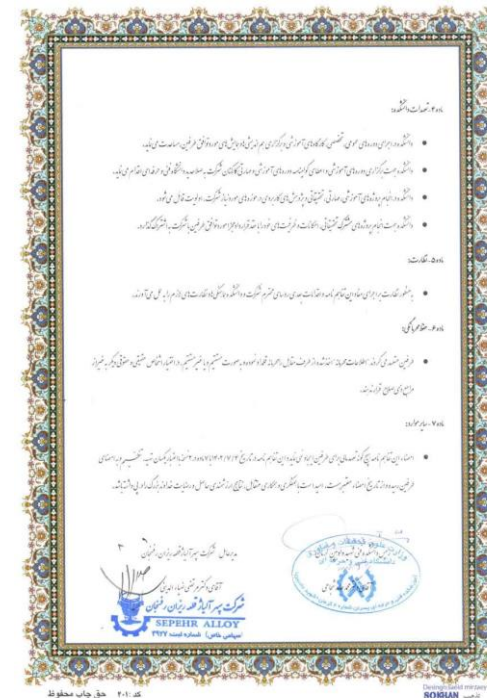 ماده ۴ـ تعهدات دانشکده:
• دانشکده در اجرای دوره های عمومی، تخصصی، کارگاه های آموزشی و برگزاری هم اندیشی ها و همایش های مورد توافق طرفین، مساعدت می نماید.
• دانشکده جهت برگزاری دوره های آموزشی و اعطای گواهینامه دوره های آموزشی و مهارتی کارکنان شرکت به صلاحدید دانشگاه فنی و حرفه ای اقدام می نماید.
• دانشکده در انجام پروژه های آموزشی، مهارتی، تحقیقاتی و پژوهش های کاربردی در حوزه های مورد نیاز شرکت، اولویت قائل می شود.
• دانشکده جهت انجام پروژه های مشترک تحقیقاتی، امکانات و ظرفیت های خود را با عقد قرارداد و مورد توافق طرفین با شرکت به اشتراک گذارد.
ماده ۵ـ نظارت:
• به منظور نظارت بر اجرای مفاد این تفاهم نامه و اقدامات بعدی روسای محترم شرکت و دانشکده هماهنگی ها و نظارت های لازم را به عمل می آورند.
ماده ۶ـ حفظ محرمانگی:
• طرفین متعهد می گردند اطلاعات محرمانه اخذ شده از طرف مقابل را محرمانه تلقی نموده و به صورت مستقیم و یا غیر مستقیم در اختیار اشخاص حقیقی و حقوقی دیگر به غیر از
مراجع ذی صلاح قرار ندهند.
ماده ۷ـ سایر موارد:
• امضاء این تفاهم نامه هیچ گونه تعهد مالی برای طرفین ایجاد نمی نماید. این تفاهم نامه در تاریخ
طرفین رسیده و از تاریخ امضاء معتبر است. امید است با همفکری و همکاری متقابل، نتایج ارزشمندی حاصل و رضایت خداوند بزرگ را در پی داشته باشد.
مدیرعامل شرکت سپهر آلیاژ قلعه ریزان رفسنجان
شرکت سپهر آلیاژ قلعه ریزان رفسنجان
SEPEHR ALLOY
(سهامی خاص) شماره ثبت: ۳۹۲۷
کد :۲۰۱ حق چاپ محفوظ
SOKHAN